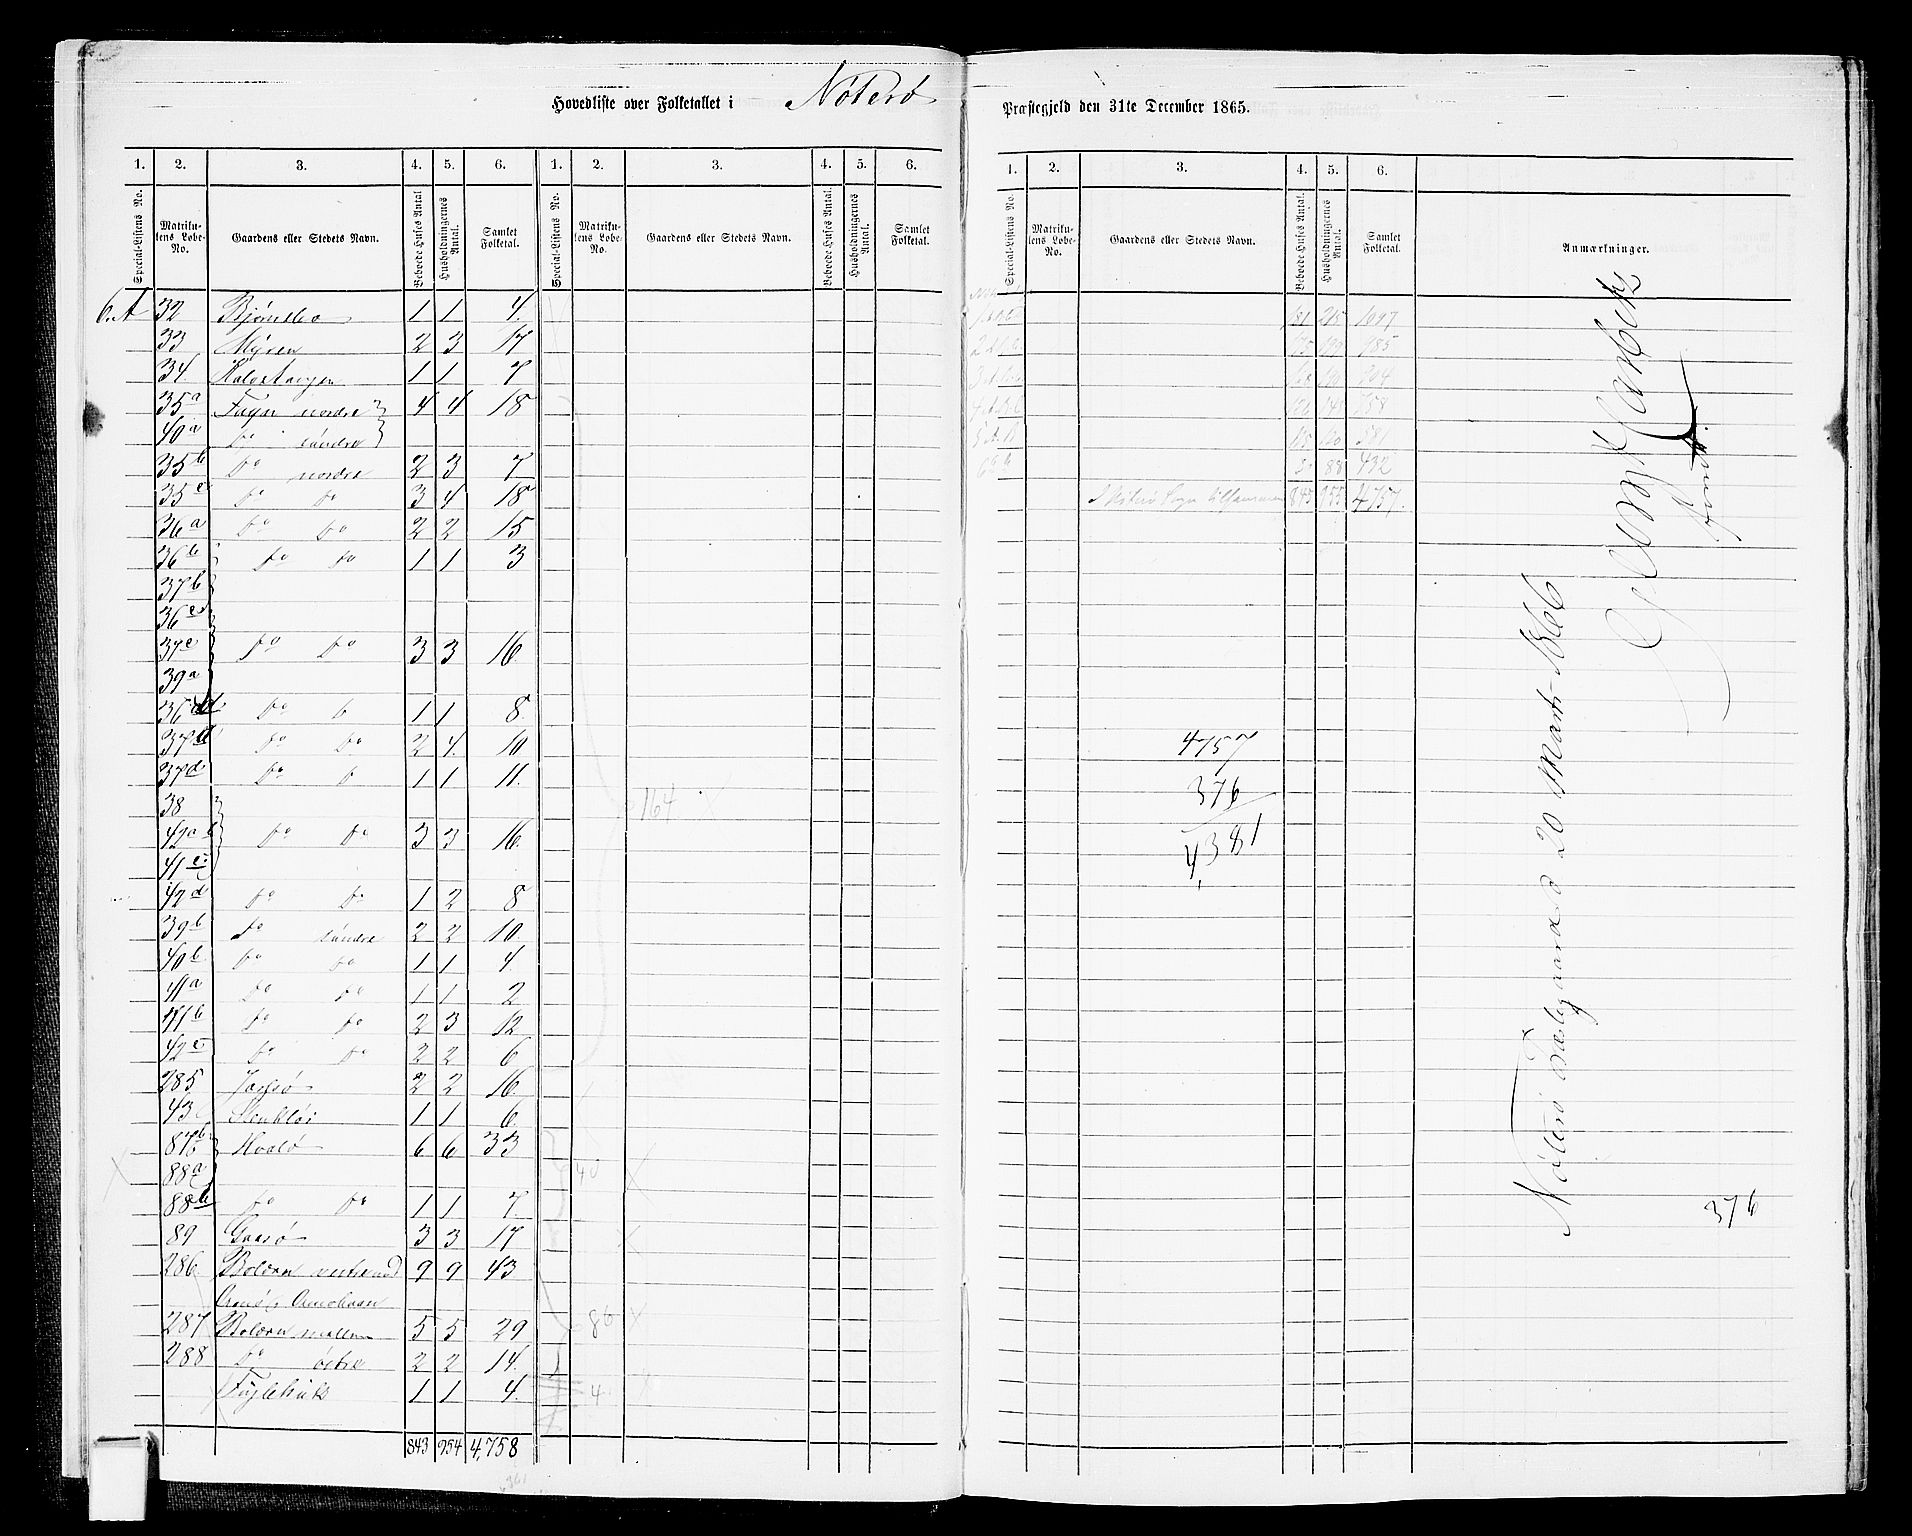 Hovedliste over Folketallet i Nøterø Præstegjeld den 31te December 1865.
1. 2. 3. 4. 5. 6. 1. 2. 3. 4. 5. 6.
Special-Listens No. Matrikulens Løbe-No. Gaardens eller Stedets Navn. Beboede Huses Antal Husholdningernes Antal. Samlet Folketal. Special-Listens No. Matrikulens Løbe-No. Gaardens eller Stedets Navn. Beboede Huses Antal. Husholdningernes Antal. Samlet Folketal.
6.A 32 Bjørnebo 1 1 4.
33 Myren 2 3 17
34. Kalvetangen 1 1 7
35a Fuyn nordre 4 4 18
40a do søndre
35b do nordre 2 3 7
35c do do 3 4 18
36a do do 2 2 15
36b do do 1 1 3
37b
36c
37c do do 3 3 16.
39a
36d do do 1 1 8.
37a do do 2 4. 10
37d do do 1 1 11.
38
42a do do 3 3 16.
41c
42d do do 1 2 8
39b do søndre 2 2 10.
40b do do 1 1 4.
41a do do 1 1 2
41b do do 2 3 12
42c do do 2 2 6
285 Jarsø 2 2 16.
43 1 1 6.
87b Hvalø 6 6 33
88a
88b do do 1 1 7.
89 Gaasø 3 3 17
286. Bolærn vestre 9 9 43
287 Bolærn mellem 5 5 29
288 do østre 2 2 14.
Fuglehuk 1 1 4.
843 954 4,758
164
40
86
4
1. 2. 3. 4. 5. 6.
Special-Listens No. Matrikulens Løbe-No. Gaardens eller Stedets Navn. Beboede Huses Antal. Husholdningernes Antal. Samlet Folketal. Anmærkninger.
88 432
I Nøterø Sogn tilsammen 843 955 4757.
4757
376
4,381
Nøterø Præstegaard d 20 Marts 1866
376